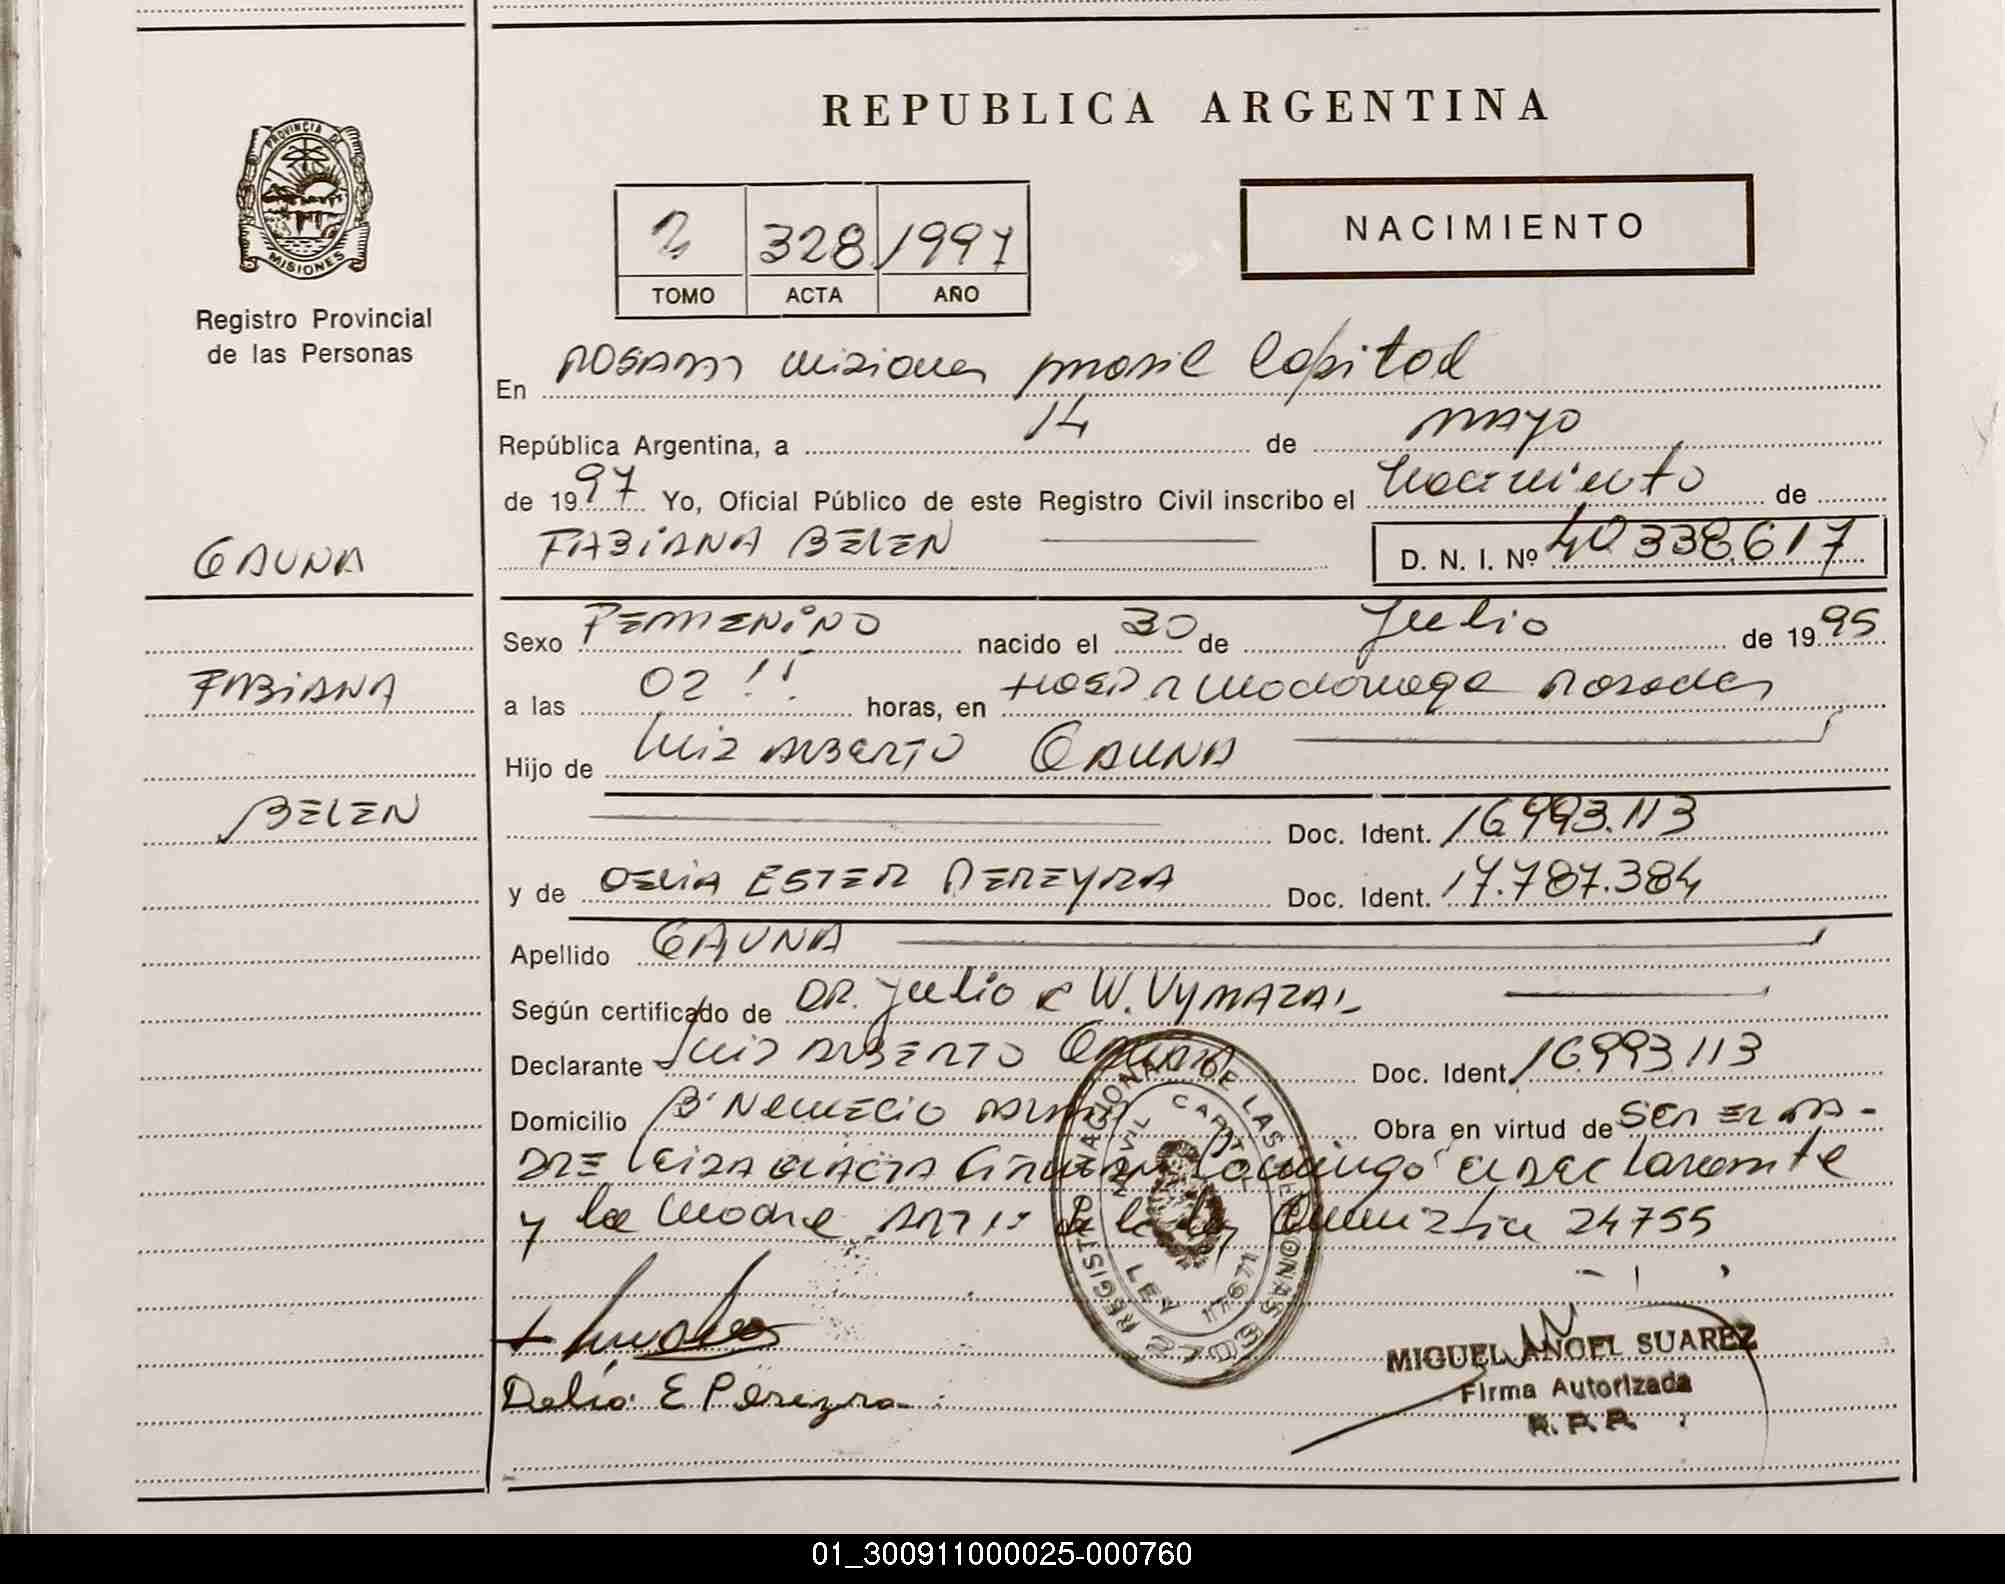 REPUBLICA ARGENTINA
PROVINCIA DE
MISIONES
Registro Provincial
de las Personas
2 328 1997
TOMO ACTA AÑO
NACIMIENTO
En POSADAS misiones Capital
República Argentina, a 14 de MAYO
de 1997 Yo, Oficial Público de este Registro Civil inscribo el Nacimiento de
GAUNA
FABIANA BELEN D. N. I. Nº 40338617
Sexo FEMENINO nacido el 30 de Julio de 1995
FABIANA
a las 02 horas, en Posadas
Hijo de Luis ALBERTO GAUNA
BELEN
Doc. Ident. 16993.113
y de DELIA ESTER PEREYRA Doc. Ident. 17.787.384
Apellido GAUNA
Según certificado de DR. Julio W. VYMAZAL
Declarante Luis ALBERTO GAUNA Doc. Ident. 16993113
Domicilio Bº NEMECIO Obra en virtud de SER EL PA-
DRE el DECLARANTE
y la Madre 24755
REGISTRO NACIONAL DE LAS PERSONAS
CIVIL CAPITAL
LEY 17671
Delia E Pereyra
MIGUEL ANGEL SUAREZ
Firma Autorizada
R. P. P.
01_300911000025-000760